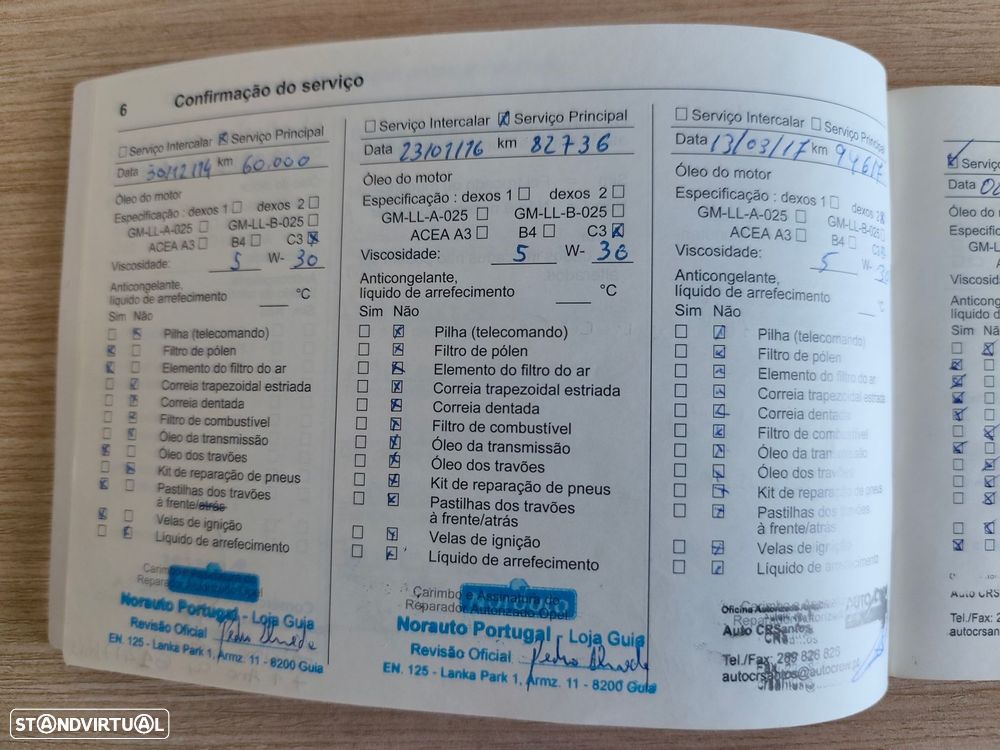 6 Confirmação do serviço
Serviço Intercalar Serviço Principal
Data 30/12/14 km 60.000
Óleo do motor
Especificação : dexos 1 dexos 2
GM-LL-A-025 GM-LL-B-025
ACEA A3 B4 C3
Viscosidade: 5 W- 30
Anticongelante,
líquido de arrefecimento °C
Sim Não
Pilha (telecomando)
Filtro de pólen
Elemento do filtro do ar
Correia trapezoidal estriada
Correia dentada
Filtro de combustível
Óleo da transmissão
Óleo dos travões
Kit de reparação de pneus
Pastilhas dos travões
à frente/atrás
Velas de ignição
Líquido de arrefecimento
Norauto Portugal - Loja Guia
Revisão Oficial
EN. 125 - Lanka Park 1, Armz. 11 - 8200 Guia
Serviço Intercalar Serviço Principal
Data 23/01/16 km 82736
Óleo do motor
Especificação : dexos 1 dexos 2
GM-LL-A-025 GM-LL-B-025
ACEA A3 B4 C3
Viscosidade: 5 W- 30
Anticongelante,
líquido de arrefecimento °C
Sim Não
Pilha (telecomando)
Filtro de pólen
Elemento do filtro do ar
Correia trapezoidal estriada
Correia dentada
Filtro de combustível
Óleo da transmissão
Óleo dos travões
Kit de reparação de pneus
Pastilhas dos travões
à frente/atrás
Velas de ignição
Líquido de arrefecimento
Carimbo e Assinatura do
Reparador Autorizado Opel
Norauto Portugal - Loja Guia
Revisão Oficial
EN. 125 - Lanka Park 1, Armz. 11 - 8200 Guia
Serviço Intercalar Serviço Principal
Data 13/03/17 km 94617
Óleo do motor
Especificação : dexos 1 dexos 2
GM-LL-A-025 GM-LL-B-025
ACEA A3 B4 C3
Viscosidade: 5 W- 30
Anticongelante,
líquido de arrefecimento °C
Sim Não
Pilha (telecomando)
Filtro de pólen
Elemento do filtro do ar
Correia trapezoidal estriada
Correia dentada
Filtro de combustível
Óleo da transmissão
Óleo dos travões
Kit de reparação de pneus
Pastilhas dos travões
à frente/atrás
Velas de ignição
Líquido de arrefecimento
Auto CRSantos
Tel./Fax: 289 826 825
Serviço
Data
Óleo do
GM-L
Viscosid
Anticong
líquido d
Sim
Auto CRS
Tel./Fax: 2
autocrsan
STANDVIRTUAL